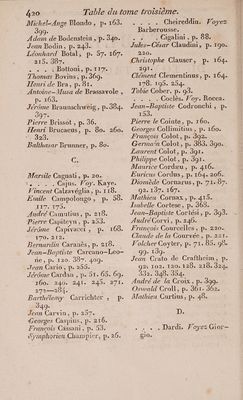 420 Table du tome troisième.
Michel-Ange Blondo, p. 163.
399.
Adam de Bodenstein, p. 340.
Jean Bodin, p. 243.
Léonhard Botal, p. 57. 167.
215. 387.
. . . . Bottoni, p. 117.
Thomas Bovius, p. 369.
Henri de Bra, p. 81.
Antoine-Musa de Brassavole,
p. 163.
Jérôme Braunschweig, p. 384.
397.
Pierre Brissot, p. 36.
Henri Brucaeus, p. 80. 260.
323.
Balthasar Brunner, p. 80.
C.
Marsile Cagnati, p. 20.
. . . . Cajus. Voy. Kaye.
Vincent Calzaveglia, p. 118.
Emile Campolongo, p. 58.
117. 175.
André Camutius, p. 218.
Pierre Capiteyn, p. 253.
Jérôme Capivacci, p. 168.
170. 212.
Bernardin Caranès, p. 218.
Jean-Baptiste Carcano-Leo-
ne, p. 120. 387. 409.
Jean Cario, p. 255.
Jérôme Cardan, p. 51. 65. 69.
160. 240. 241. 245. 271.
271—284.
Barthélemy Carrichter, p.
349.
Jean Carvin, p. 257.
Georges Caspius, p. 216.
François Cassani, p. 53.
Symphorien Champier, p. 26.
. . . . Cheireddin. Voyez
Barberousse.
. . . . Cigalini, p. 88.
Jules-César Claudini, p. 190.
220.
Christophe Clauser, p. 164.
291.
Clément Clementinus, p. 164.
178. 195. 234.
Tobie Cober, p. 93.
. . . . Coclès. Voy. Rocca.
Jean-Baptiste Codronchi, p.
153.
Pierre le Cointe, p. 160.
Georges Collimitius, p. 160.
François Colot, p. 392.
Germain Colot, p. 383. 390.
Laurent Colot, p. 391.
Philippe Colot, p. 391.
Maurice Cordæus, p. 416.
Euricus Cordus, p. 164. 206.
Diomède Cornarus, p. 71. 87.
92. 132. 167.
Mathieu Cornax, p. 415.
Isabelle Cortese, p. 363.
Jean-Baptiste Cortési, p. 393.
André Corvi, p. 246.
François Courcelles, p. 220.
Claude de la Courvée, p. 221.
Volcher Coyter, p. 71. 85. 98.
99. 139.
Jean Crato de Craftheim, p.
92. 102. 120. 128. 218. 324.
332. 348. 354.
André de la Croix, p. 399.
Oswald Croll, p. 361. 362.
Mathieu Curtius, p. 48.
D.
. . . . Dardi. Voyez Gior-
gio.